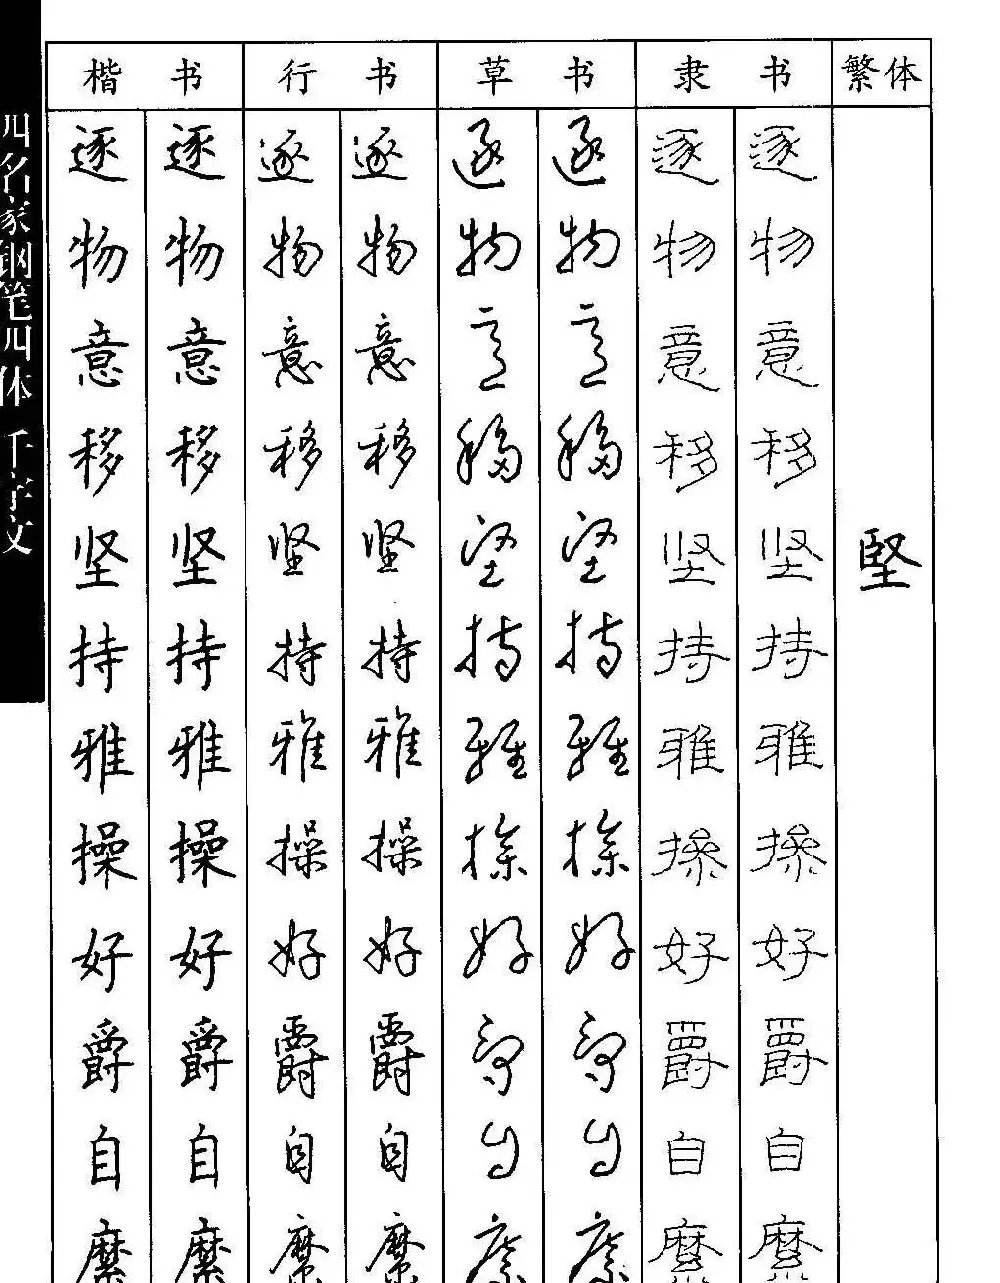 楷书 行书 草书 隶书 繁体
逐 逐 逐 逐 逐 逐 逐 逐
物 物 物 物 物 物 物 物
意 意 意 意 意 意 意 意
移 移 移 移 移 移 移 移
坚 坚 坚 坚 坚 坚 坚 坚 堅
持 持 持 持 持 持 持 持
雅 雅 雅 雅 雅 雅 雅 雅
操 操 操 操 操 操 操 操
好 好 好 好 好 好 好 好
爵 爵 爵 爵 爵 爵 爵 爵
自 自 自 自 自 自 自 自
縻 縻 縻 縻 縻 縻 縻 縻
四名家钢笔四体千字文